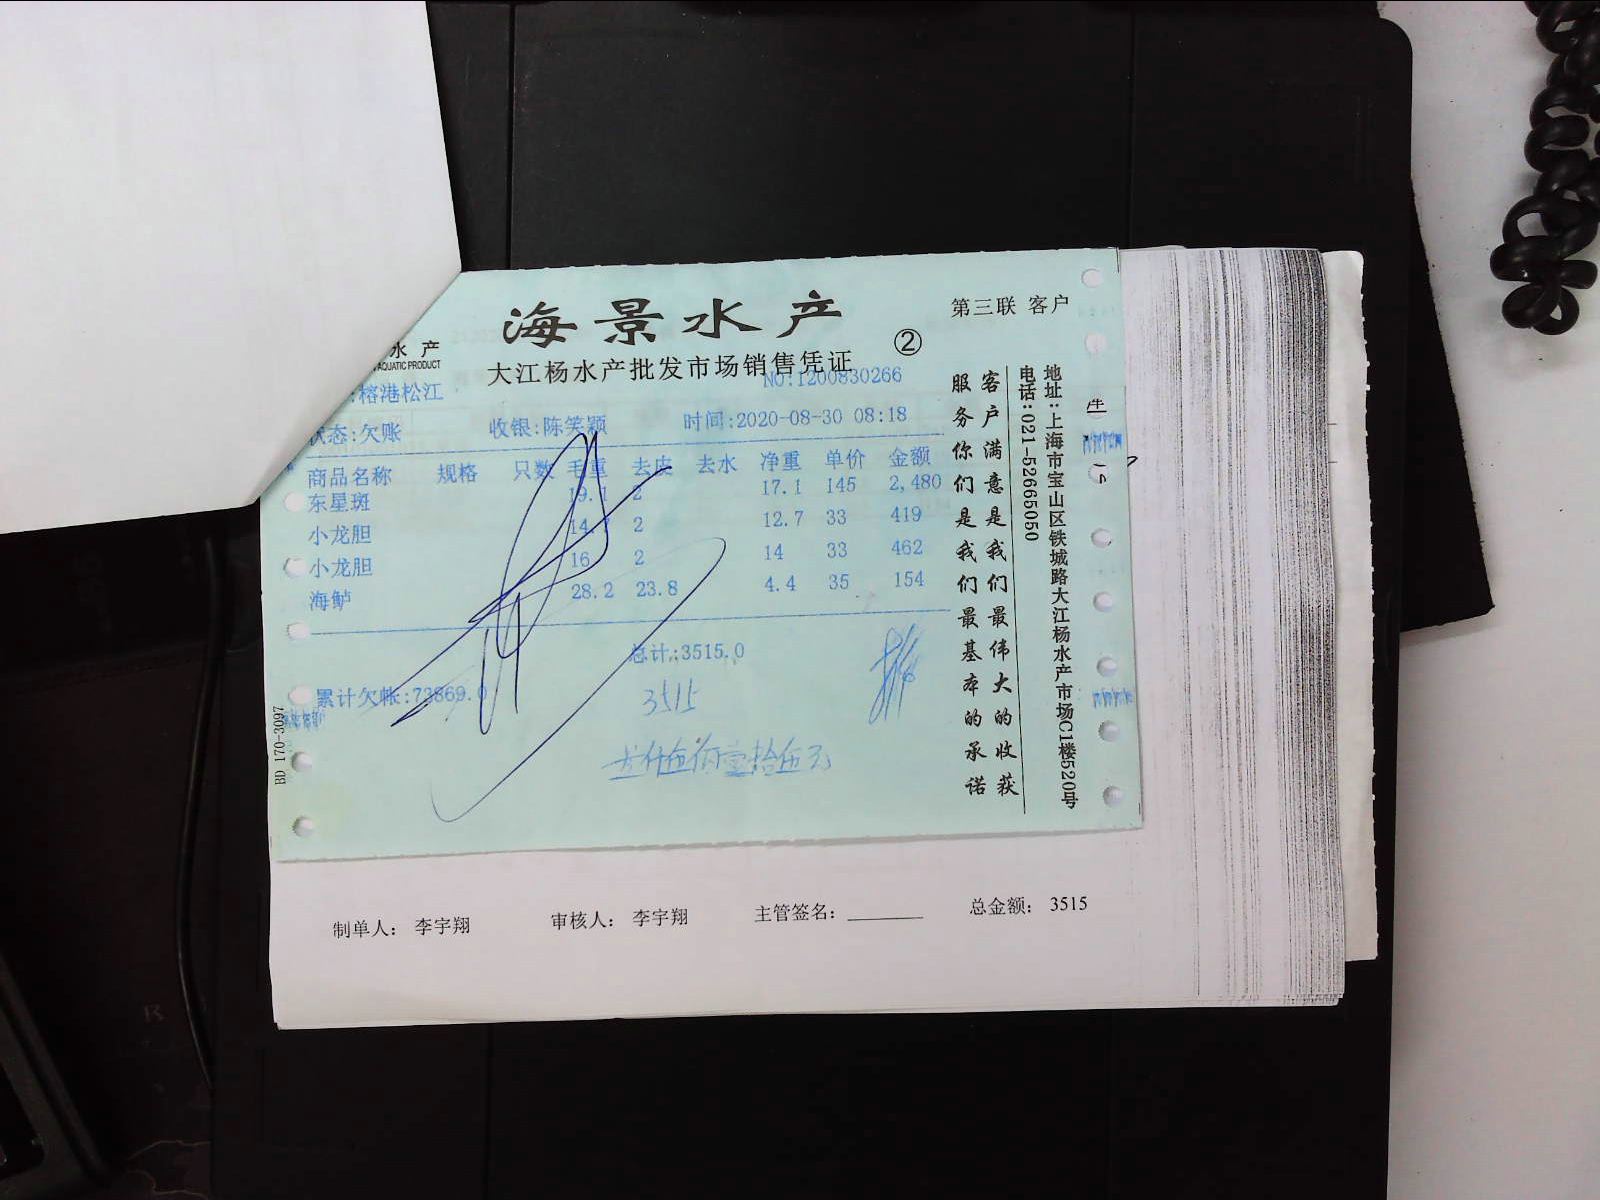 海景水产
第三联 客户
②
水产
AQUATIC PRODUCT
大江杨水产批发市场销售凭证
NO:1200830266
:榕港松江
状态:欠账 收银:陈笑颖 时间:2020-08-30 08:18
商品名称 规格 只数 毛重 去皮 去水 净重 单价 金额
东星斑 19.1 2 17.1 145 2,480
小龙胆 14.7 2 12.7 33 419
小龙胆 16 2 14 33 462
海鲈 28.2 23.8 4.4 35 154
总计:3515.0
累计欠帐:73869.0
3515
叁仟伍佰壹拾伍元
客户满意是我们最伟大的收获
服务你们是我们最基本的承诺
地址:上海市宝山区铁城路大江杨水产市场C1楼520号
电话:021-52665050
BD 170-3097
制单人: 李宇翔 审核人: 李宇翔 主管签名: 总金额: 3515